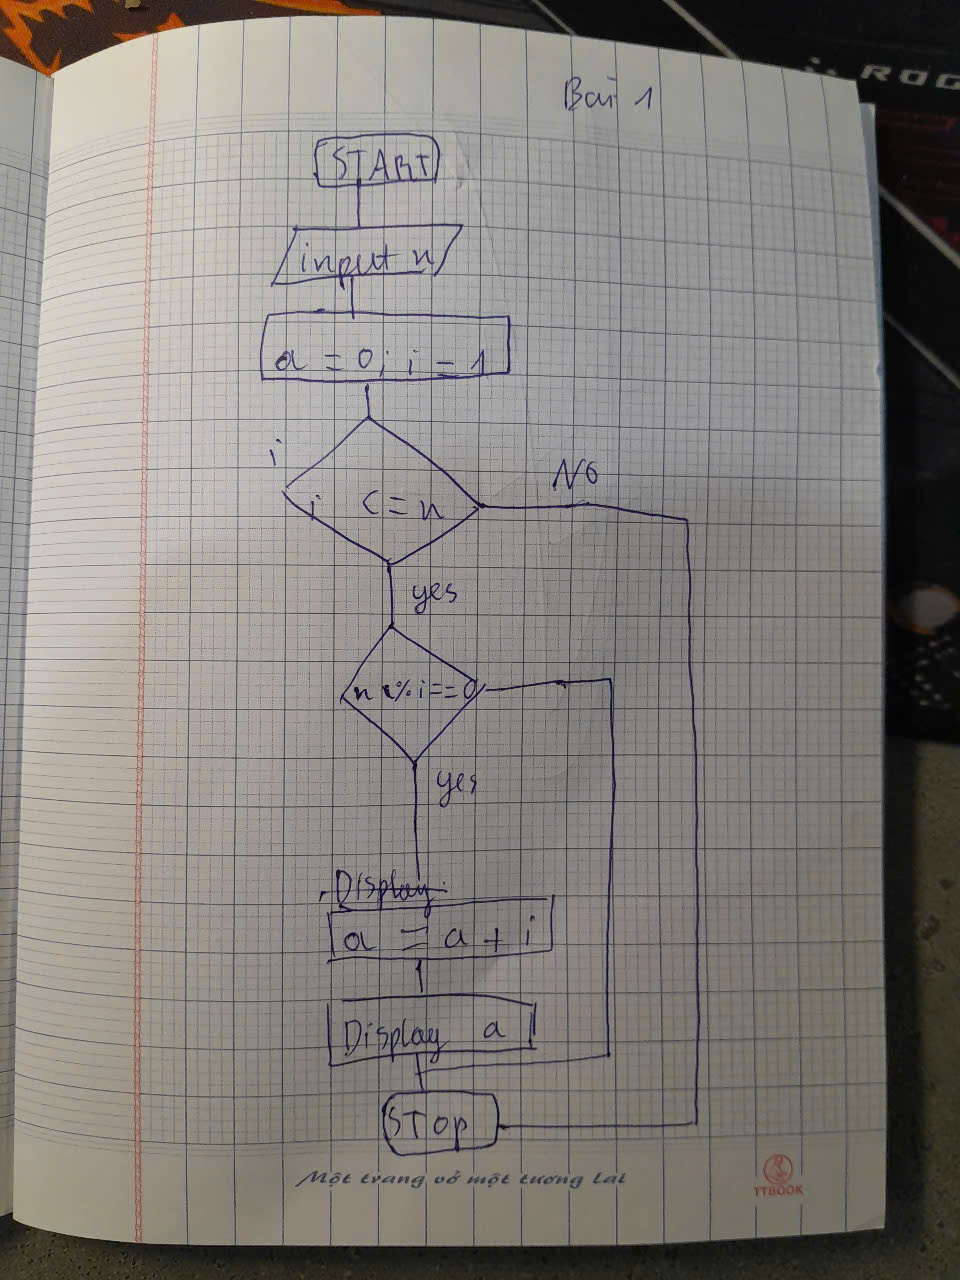 ROG
Bài 1
START
input n
a = 0; i = 1
i
i <= n
NO
yes
n % i == 0
yes
Display
a = a + i
Display a
STOP
Một trang vở một tương lai
TTBOOK